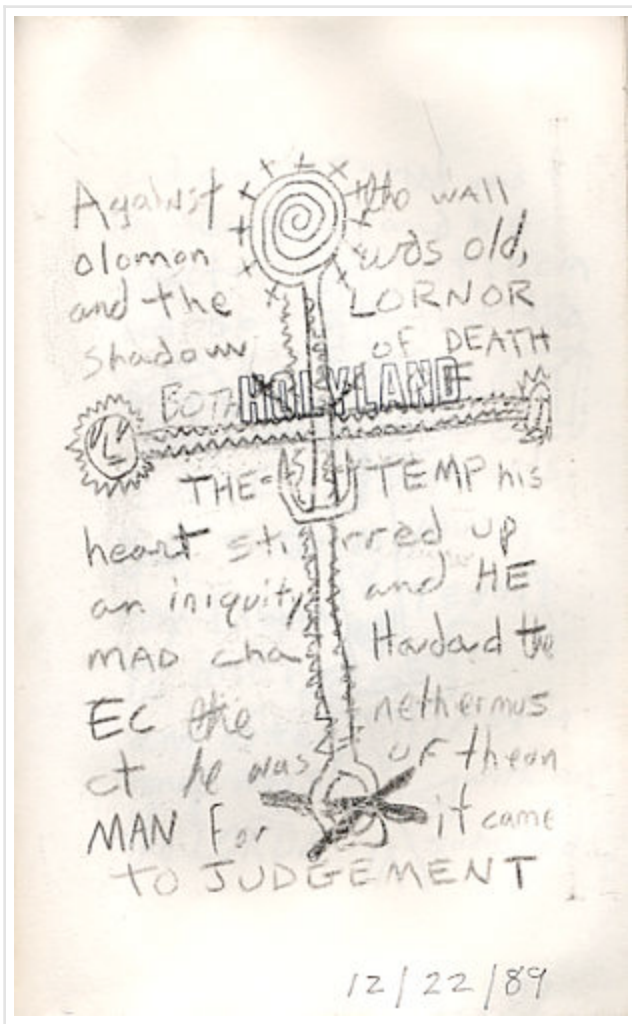 Against the wall
olomon was old,
and the LORNOR
shadow OF DEATH
BOTH HOLYLAND
THE TEMP his
heart stirred up
an iniquity and HE
MAD cha the
EC the nethermus
ct he was of
MAN For it came
TO JUDGEMENT
12/22/89